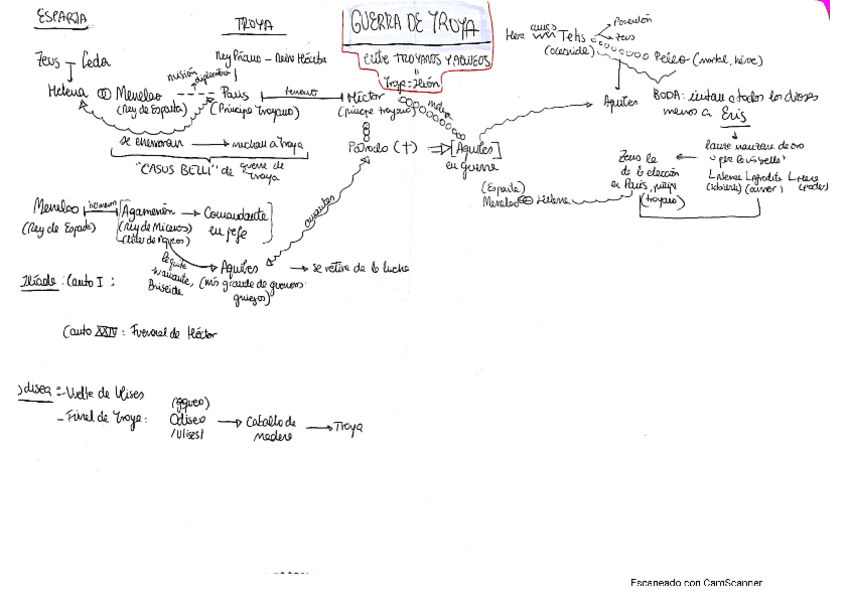 ESPARTA
TROYA
GUERRA DE TROYA
entre TROYANOS Y AQUEOS
Troya = Ilión
Zeus Leda
Rey Príamo - Reina Hécuba
misión diplomática
Helena Menelao París hermano Héctor
(Rey de Esparta) (Príncipe troyano) (príncipe troyano)
matar
se enamoran → a Troya
"CASUS BELLI" de guerra de Troya
Patroclo (†) ⇒ [Aquiles]
en guerra
amantes
Hera Tetis
Poseidón
Zeus
Peleo (mortal, héroe)
Aquiles
BODA: invitan a todos los dioses
menos a Eris
lanza manzana de oro
"para la más bella"
Atenea Afrodita Hera
(sabiduría) (amor) (poder)
Zeus le
da la elección
a Paris, príncipe
(troyano)
(Esparta)
Menelao Helena
Menelao hermano Agamenón → Comandante
(Rey de Esparta) (Rey de Micenas) en jefe
(líder de aqueos)
le quita
su amante,
Briseida
Aquiles → se retira de la lucha
(más grande de guerreros
griegos)
Ilíada: Canto I:
Canto XXIV: Funeral de Héctor
Odisea :- Vuelta de Ulises
- Final de Troya:
(aqueo)
Odiseo → Caballo de → Troya
/Ulises/ madera
Escaneado con CamScanner